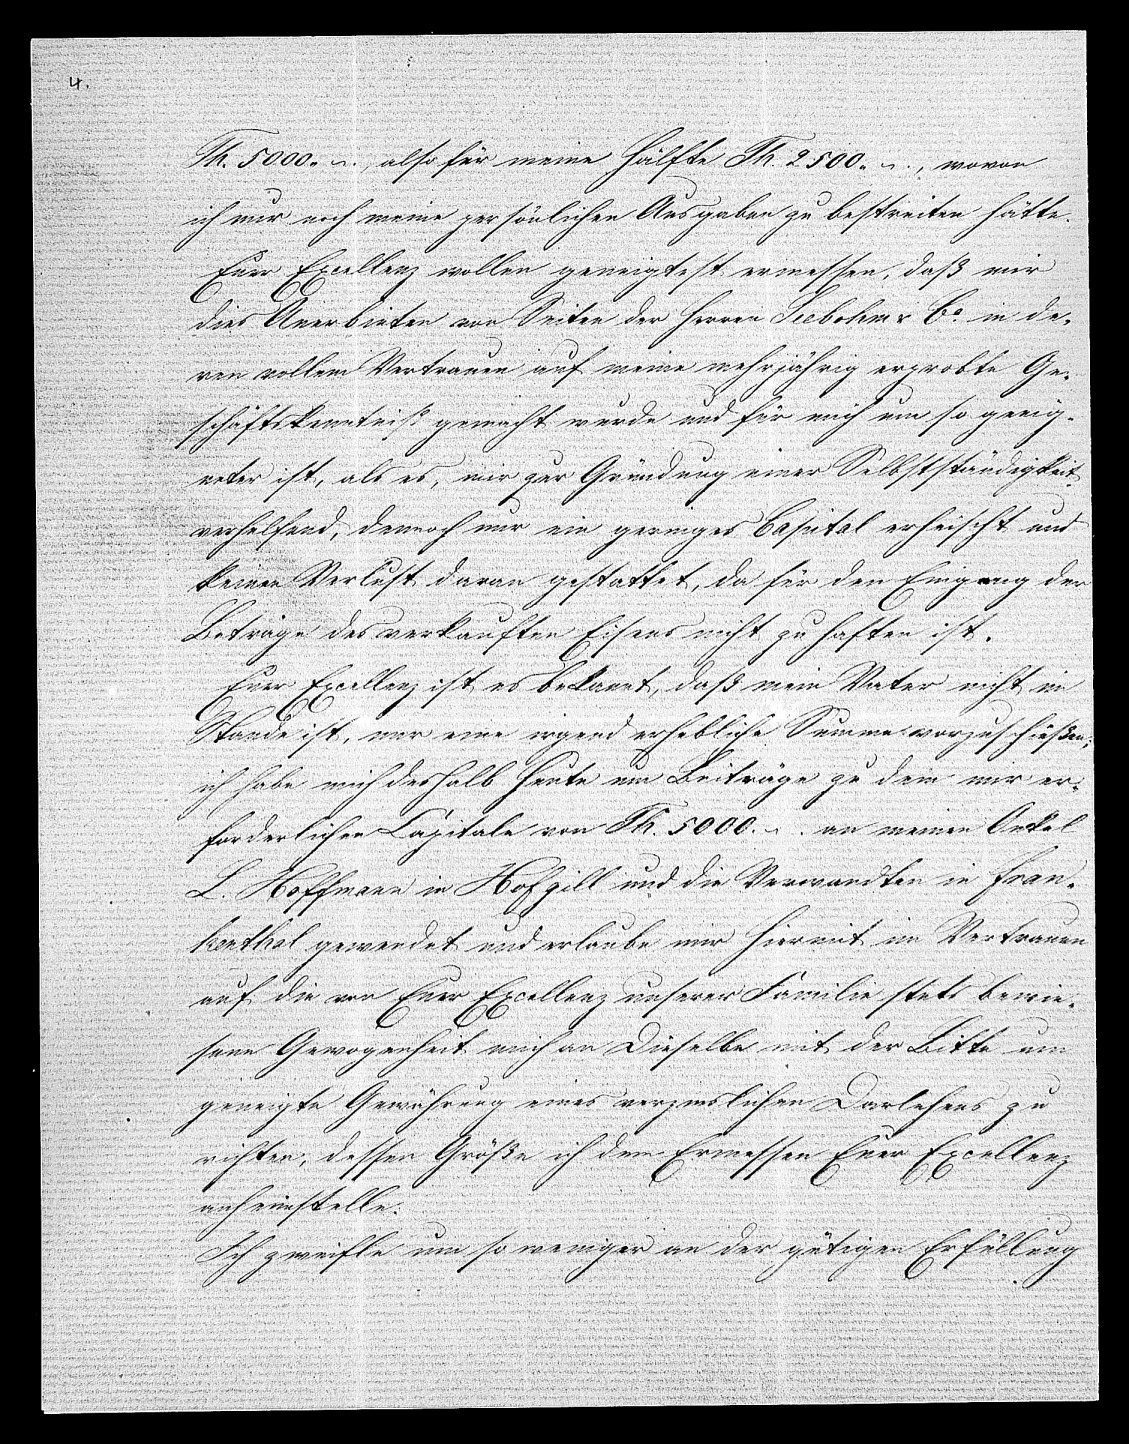 4.
Th. 5000. ~. also für meine Hälfte Th. 2500. ~., wovon
ich nur noch meine persönlichen Ausgaben zu bestreiten hätte.
Euer Excellenz wollen geneigtest ermessen, daß mir
dies Anerbieten von Seiten der Herren Seebohm & Co. in de-
ren vollem Vertrauen auf meine mehrjährig erprobte Ge-
schäftskenntniß gemacht wurde und für mich um so geeig-
neter ist, als es, mir zur Gründung einer Selbstständigkeit
verhelfend, dennoch nur ein geringes Capital erheischt und
keinen Verlust daran gestattet, da für den Eingang der
Beträge des verkauften Eisens nicht zu haften ist.
Euer Excellenz ist es bekannt, daß mein Vater nicht im
Stande ist, mir eine irgend erhebliche Summe vorzuschießen;
ich habe mich deshalb heute um Beiträge zu dem mir er-
forderlichen Capitale von Th. 5000. ~. an meinen Onkel
L. Hoffmann in Hofgill und die Verwandten in Fran-
kenthal gewendet und erlaube mir hiermit im Vertrauen
auf die von Euer Excellenz unserer Familie stets bewie-
sene Gewogenheit mich an Dieselbe mit der Bitte um
geneigte Gewährung eines verzinslichen Darlehens zu
richten, dessen Größe ich dem Ermessen Euer Excellenz
anheimstelle.
Ich zweifle um so weniger an der gütigen Erfüllung